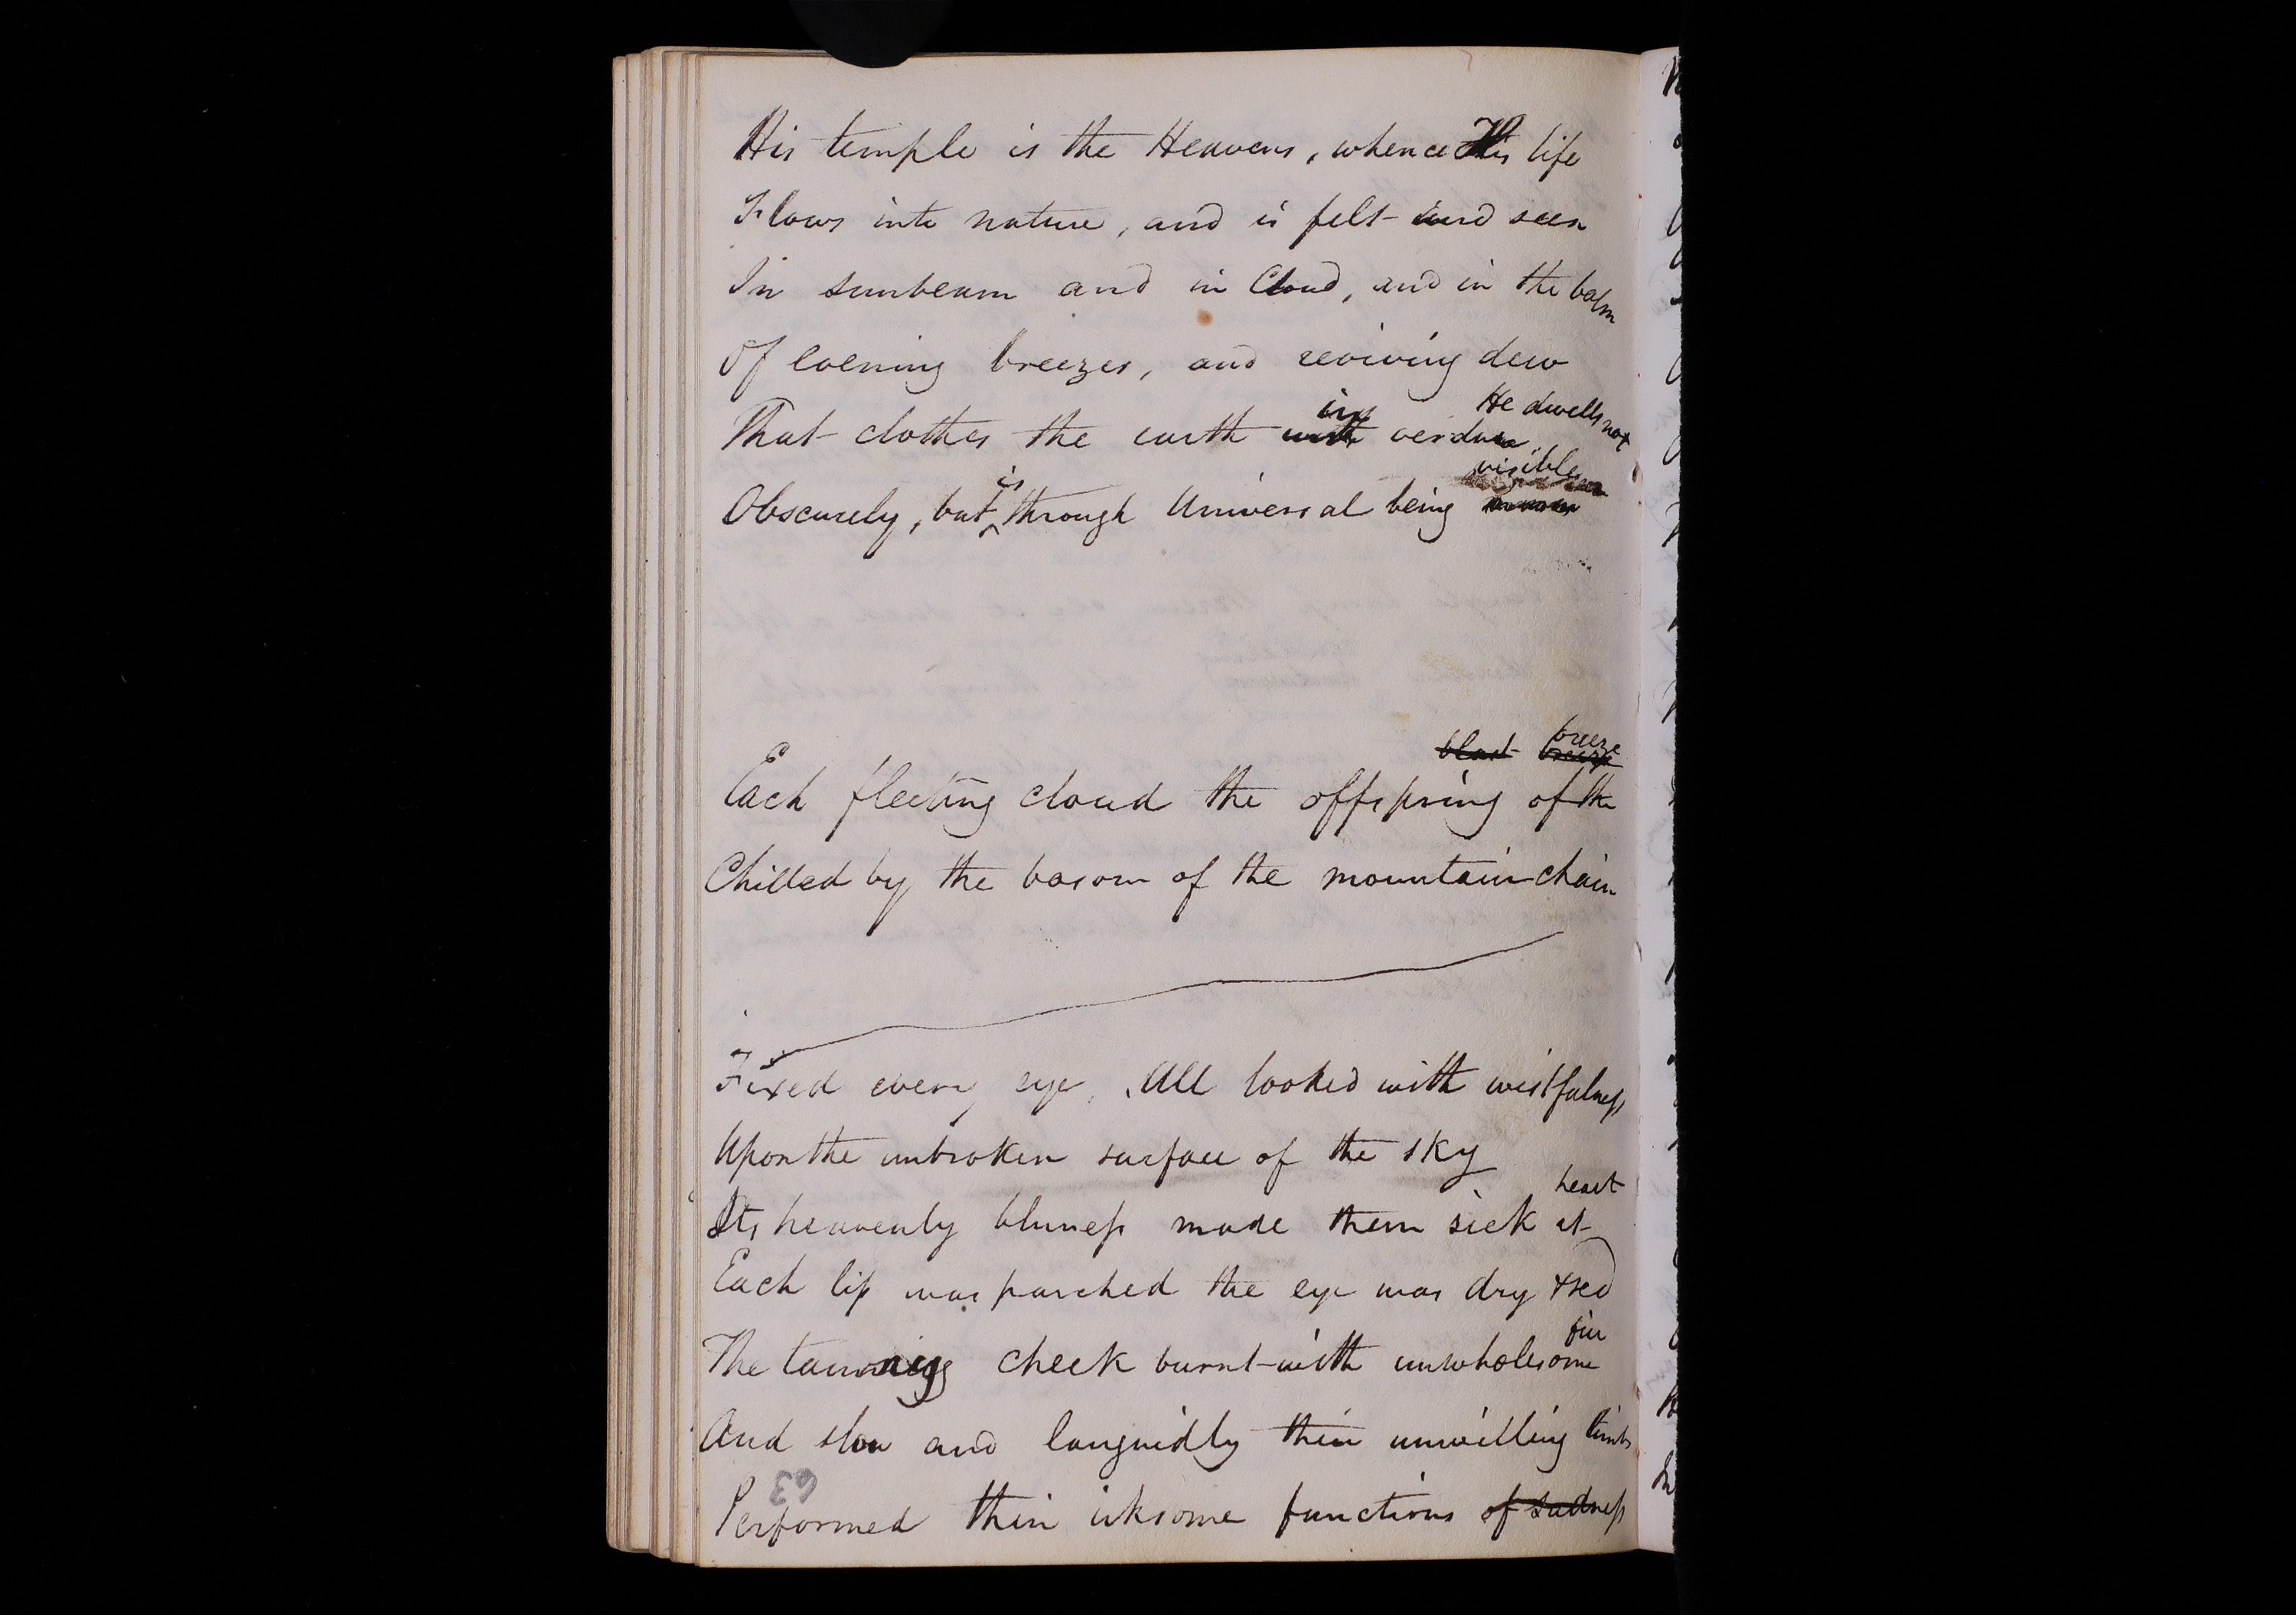 His temple is the Heavens, whence His life
Flows into nature, and is felt and seen
In sunbeam and in Cloud, and in the balm
Of evening breezes, and reviving dew
He dwells not
in
That clothes the earth with verdure.
visible
is
Obscurely, but through Universal being
blast breeze
breeze
Each fleeting cloud the offspring of the
Chilled by the bosom of the mountain chain
Fixed every eye. All looked with wistfulness
Upon the unbroken surface of the sky
heart
Its heavenly blueness made them sick at
Each lip was parched the eye was dry & red
fire
The tawny cheek burnt with unwholesome
And slow and languidly their unwilling limbs
63
Performed their irksome functions of sadness